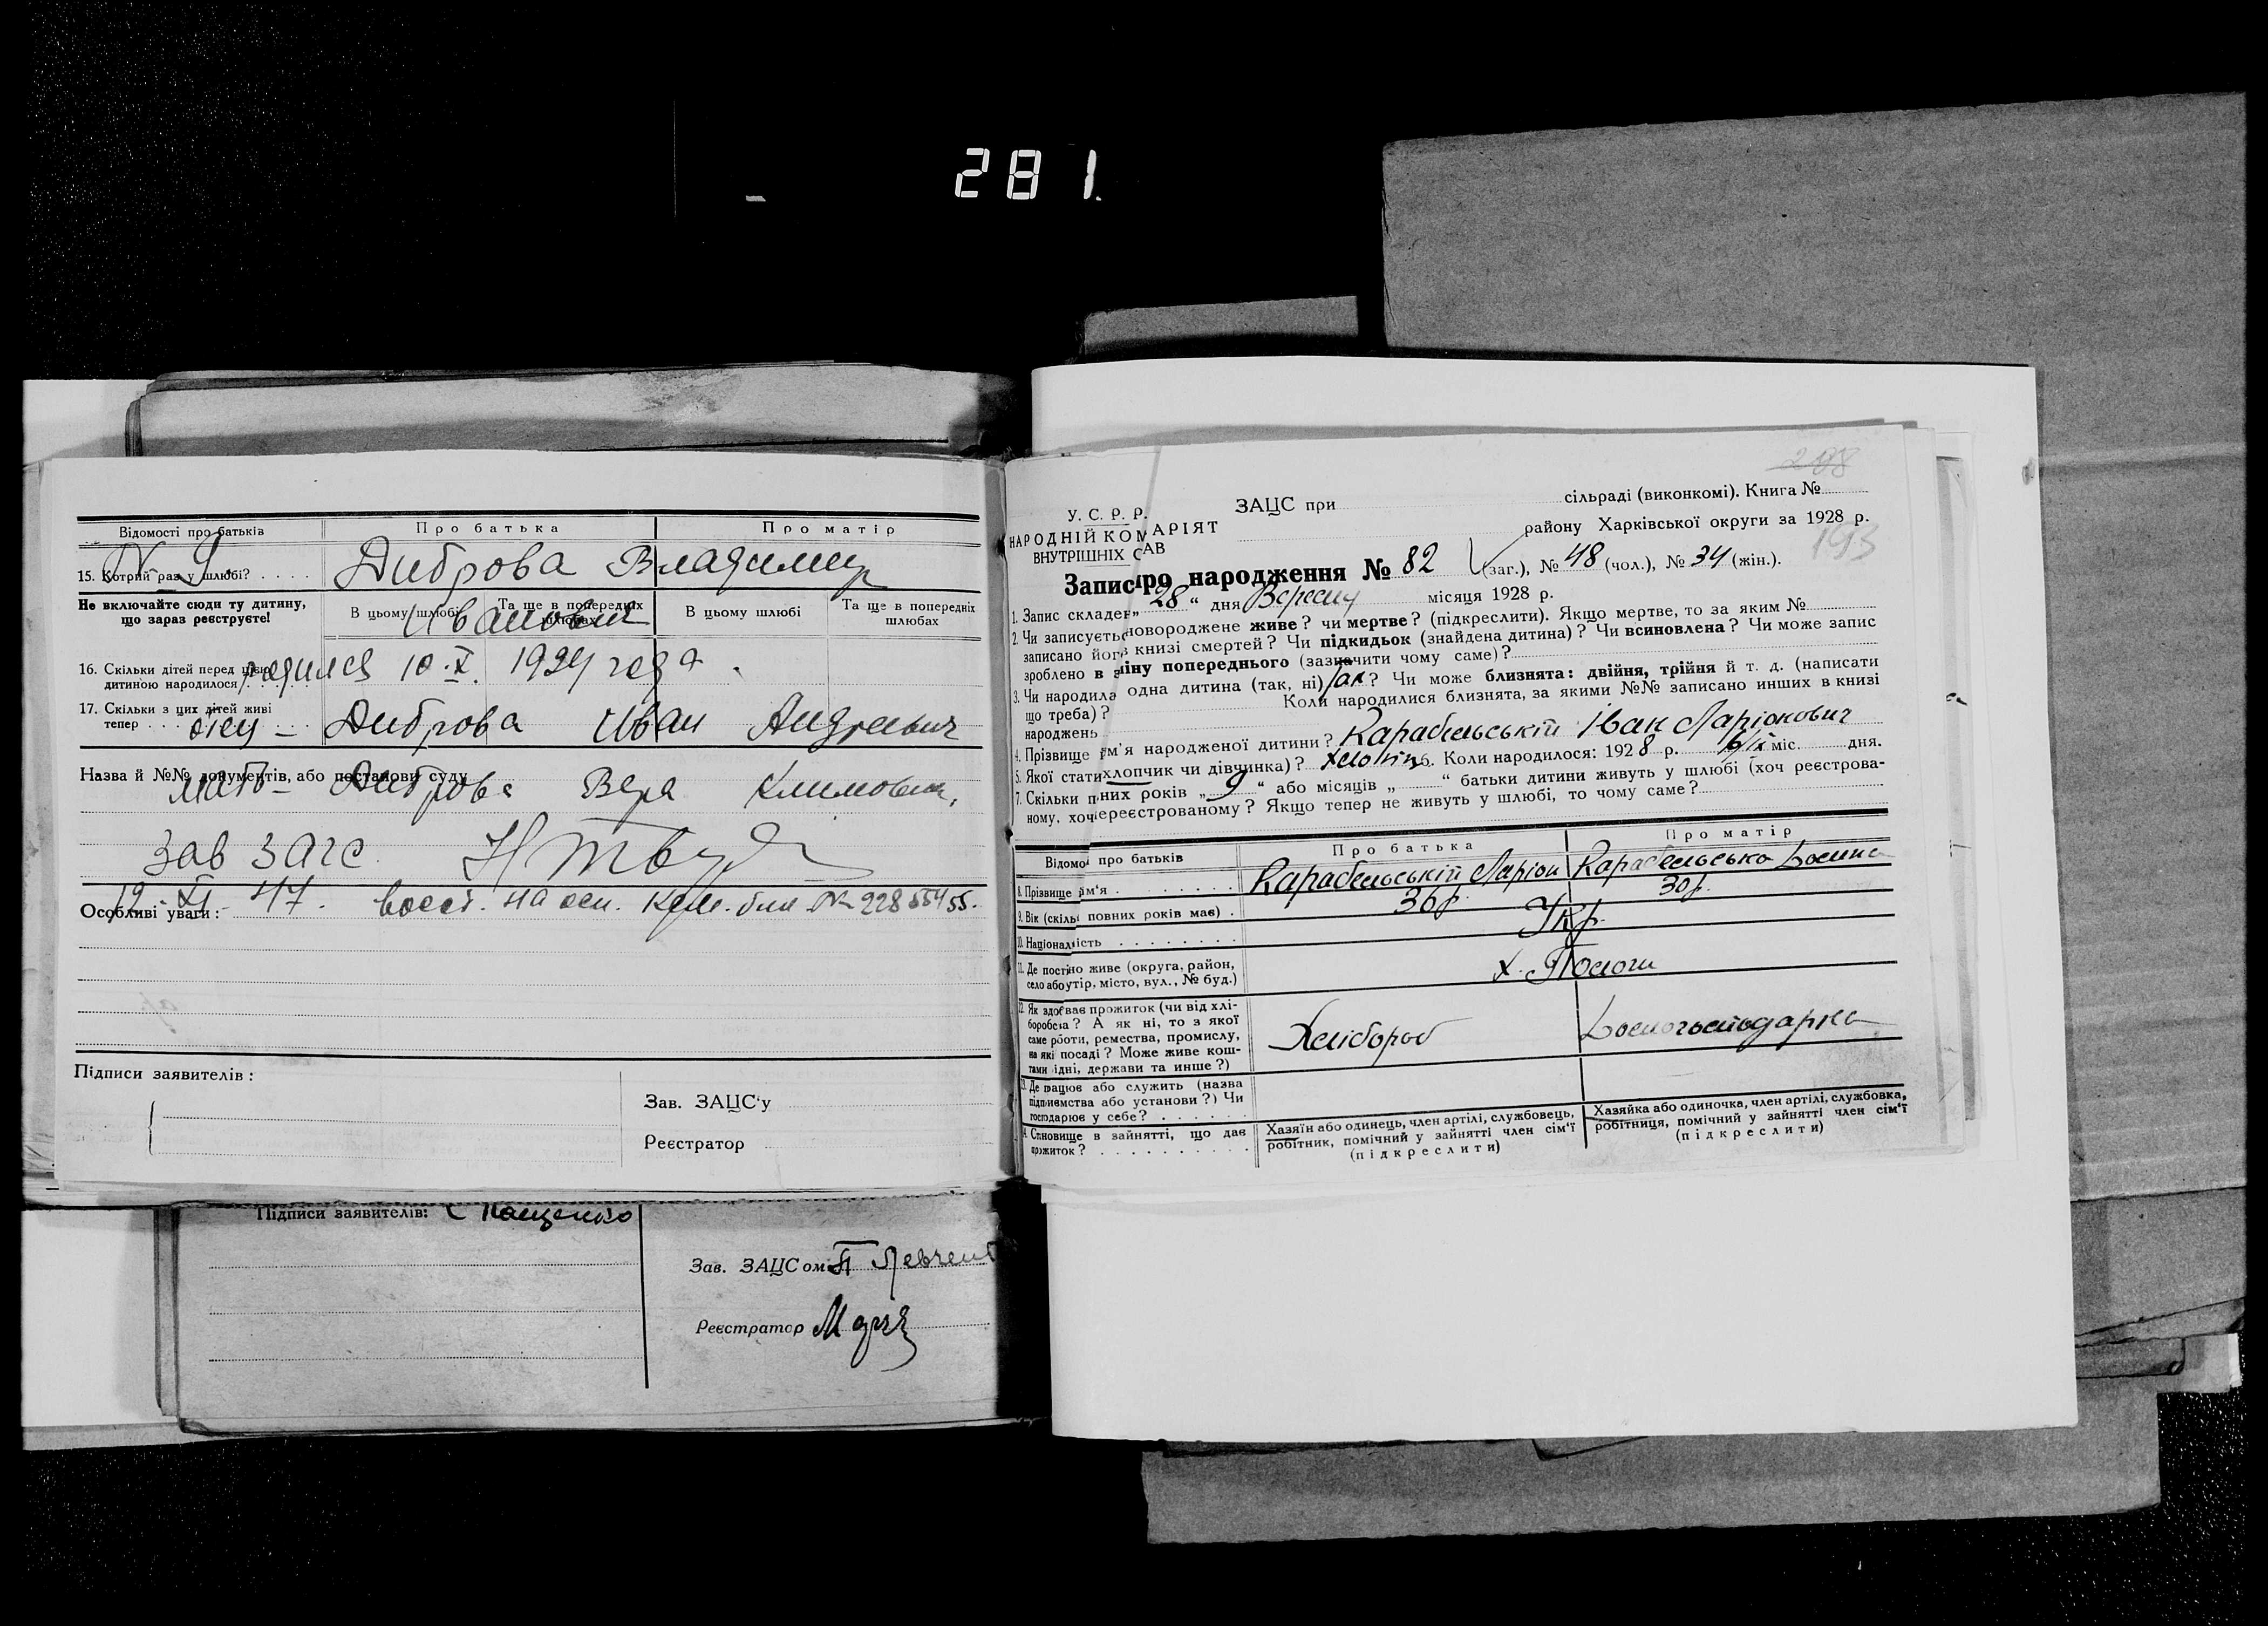 281.
Відомості про батьків Про батька Про матір
N 9. Диброва Владимир
15. Котрий раз у шлюбі? . . . .
Не включайте сюди ту дитину, що зараз реєструєте!
В цьому шлюбі Та ще в попередніх шлюбах В цьому шлюбі Та ще в попередніх шлюбах
Иванович
16. Скільки дітей перед цією дитиною народилося . . . .
родился 10.X. 1924 года.
17. Скільки з цих дітей живі тепер . . .
отец – Диброва Иван Андреевич
Назва й №№ документів, або постанови суду
мать – Диброва Вера Климовна,
Зав Загс
12 XI 47. восст. на осн.
Особливі уваги:
№ 22855455.
Підписи заявителів:
Зав. ЗАЦС'у
Реєстратор
Підписи заявителів: Пащенко
Зав. ЗАЦСом
Реєстратор
208
У. С. Р. Р.
НАРОДНІЙ КОМАРІЯТ
ВНУТРІШНІХ САВ
ЗАЦС при сільраді (виконкомі). Книга №
району Харківської округи за 1928 р.
193
Запис про народження № 82 (заг.), № 48 (чол.), № 34 (жін.).
1. Запис складен „28“ дня Вересня місяця 1928 р.
2. Чи записується новороджене живе? чи мертве? (підкреслити). Якщо мертве, то за яким №
записано його в книзі смертей? Чи підкидьок (знайдена дитина)? Чи всиновлена? Чи може запис
зроблено в зміну попереднього (зазначити чому саме)?
3. Чи народила одна дитина (так, ні) Так? Чи може близнята: двійня, трійня й т. д. (написати
що треба)? Коли народилися близнята, за якими №№ записано инших в книзі
народжень
4. Прізвище ім'я народженої дитини? Карабельській Іван Ларіонович
5. Якої стати (хлопчик чи дівчинка)? хлопчик 6. Коли народилося: 1928 р. 16/IX міс. дня.
7. Скільки повних років „9“ або місяців „ “ батьки дитини живуть у шлюбі (хоч реєстрова-
ному, хоч нереєстрованому? Якщо тепер не живуть у шлюбі, то чому саме?
Відомості про батьків Про батька Про матір
8. Прізвище ім'я . . . . . . . . Карабельській Ларіон Карабельська
9. Вік (скільки повних років має) . 36 р. 30 р.
10. Національність . . . . . . . . Укр.
11. Де постійно живе (округа, район, село або хутір, місто, вул., № буд.) х. Пологи
12. Як здобуває прожиток (чи від хлі-
боробства? А як ні, то з якої
саме роботи, ремества, промислу,
на якій посаді? Може живе кош-
тами рідні, держави та инше?)
Хлібороб Домогосподарка
13. Де працює або служить (назва
підприємства або установи?) Чи
господарює у себе? . . . . . .
14. Становище в зайнятті, що дає
прожиток? . . . . . . . . . .
Хазяїн або одинець, член артілі, службовець,
робітник, помічний у зайнятті член сім'ї
(підкреслити)
Хазяйка або одиночка, член артілі, службовка,
робітниця, помічний у зайнятті член сім'ї
(підкреслити)